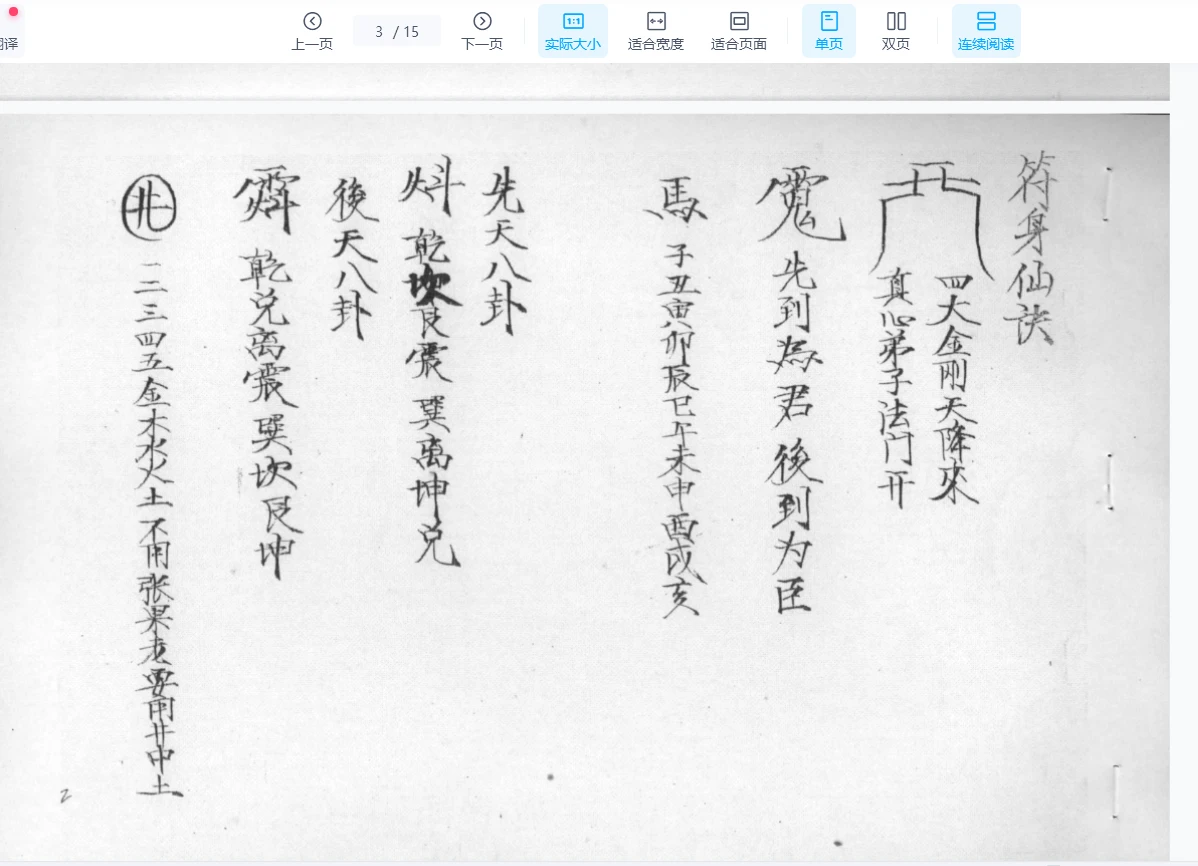 译
上一页
3 / 15
下一页
1:1
实际大小
适合宽度
适合页面
单页
双页
连续阅读
符身仙诀
四大金刚天降來
真心弟子法门开
先到為君後到为臣
馬 子丑寅卯辰巳午未申酉戌亥
先天八卦
乾坎艮震巽离坤兑
後天八卦
乾兑离震巽坎艮坤
井 一二三四五金木水火土不用张果老要用井中土
2